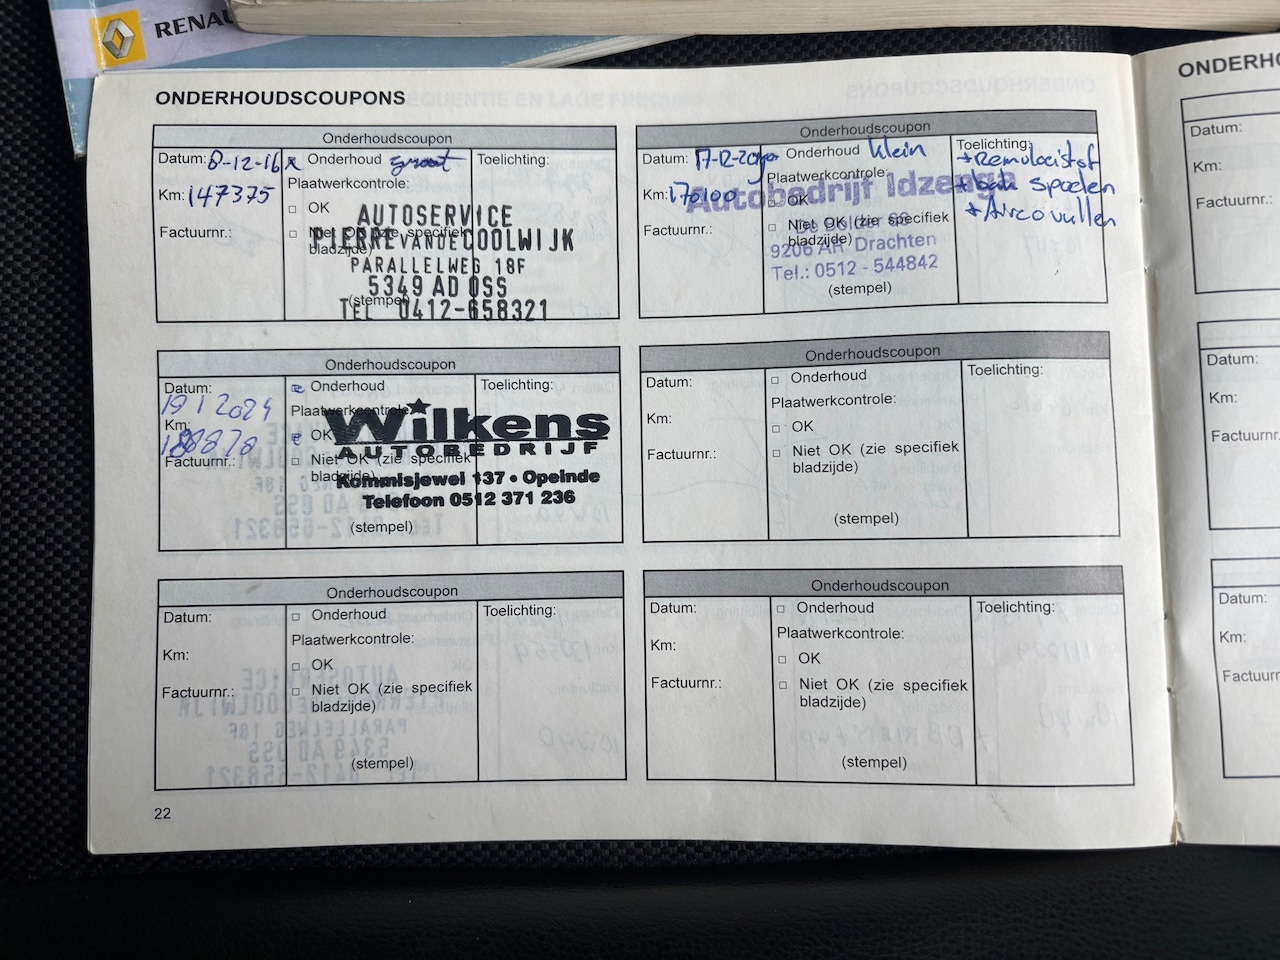 RENAU
ONDERHOUDSCOUPONS
Onderhoudscoupon
Datum: 8-12-16
x Onderhoud groot
Toelichting:
Km: 147375
Plaatwerkcontrole:
OK
Factuurnr.:
Niet OK (zie specifiek
bladzijde)
(stempel)
AUTOSERVICE
PIERRE VAN DE COOLWIJK
PARALLELWEG 18F
5349 AD OSS
TEL 0412-658321
Onderhoudscoupon
Datum: 17-12-2020
Onderhoud klein
Toelichting:
+ Remvloeistof
+ bak spoelen
+ Airco vullen
Km: 170100
Plaatwerkcontrole:
OK
Factuurnr.:
Niet OK (zie specifiek
bladzijde)
(stempel)
Autobedrijf Idzenga
De Bolder 68
9206 AR Drachten
Tel.: 0512 - 544842
Onderhoudscoupon
Datum:
19 1 2024
Onderhoud
Toelichting:
Km:
188878
Plaatwerkcontrole:
OK
Factuurnr.:
Niet OK (zie specifiek
bladzijde)
Wilkens
AUTOBEDRIJF
Kommisjewei 137 • Opeinde
Telefoon 0512 371 236
(stempel)
Onderhoudscoupon
Datum:
Onderhoud
Toelichting:
Km:
Plaatwerkcontrole:
OK
Factuurnr.:
Niet OK (zie specifiek
bladzijde)
(stempel)
Onderhoudscoupon
Datum:
Onderhoud
Toelichting:
Km:
Plaatwerkcontrole:
OK
Factuurnr.:
Niet OK (zie specifiek
bladzijde)
(stempel)
Onderhoudscoupon
Datum:
Onderhoud
Toelichting:
Km:
Plaatwerkcontrole:
OK
Factuurnr.:
Niet OK (zie specifiek
bladzijde)
(stempel)
22
ONDERHO
Datum:
Km:
Factuurnr.:
Datum:
Km:
Factuurnr
Datum:
Km:
Factuurn